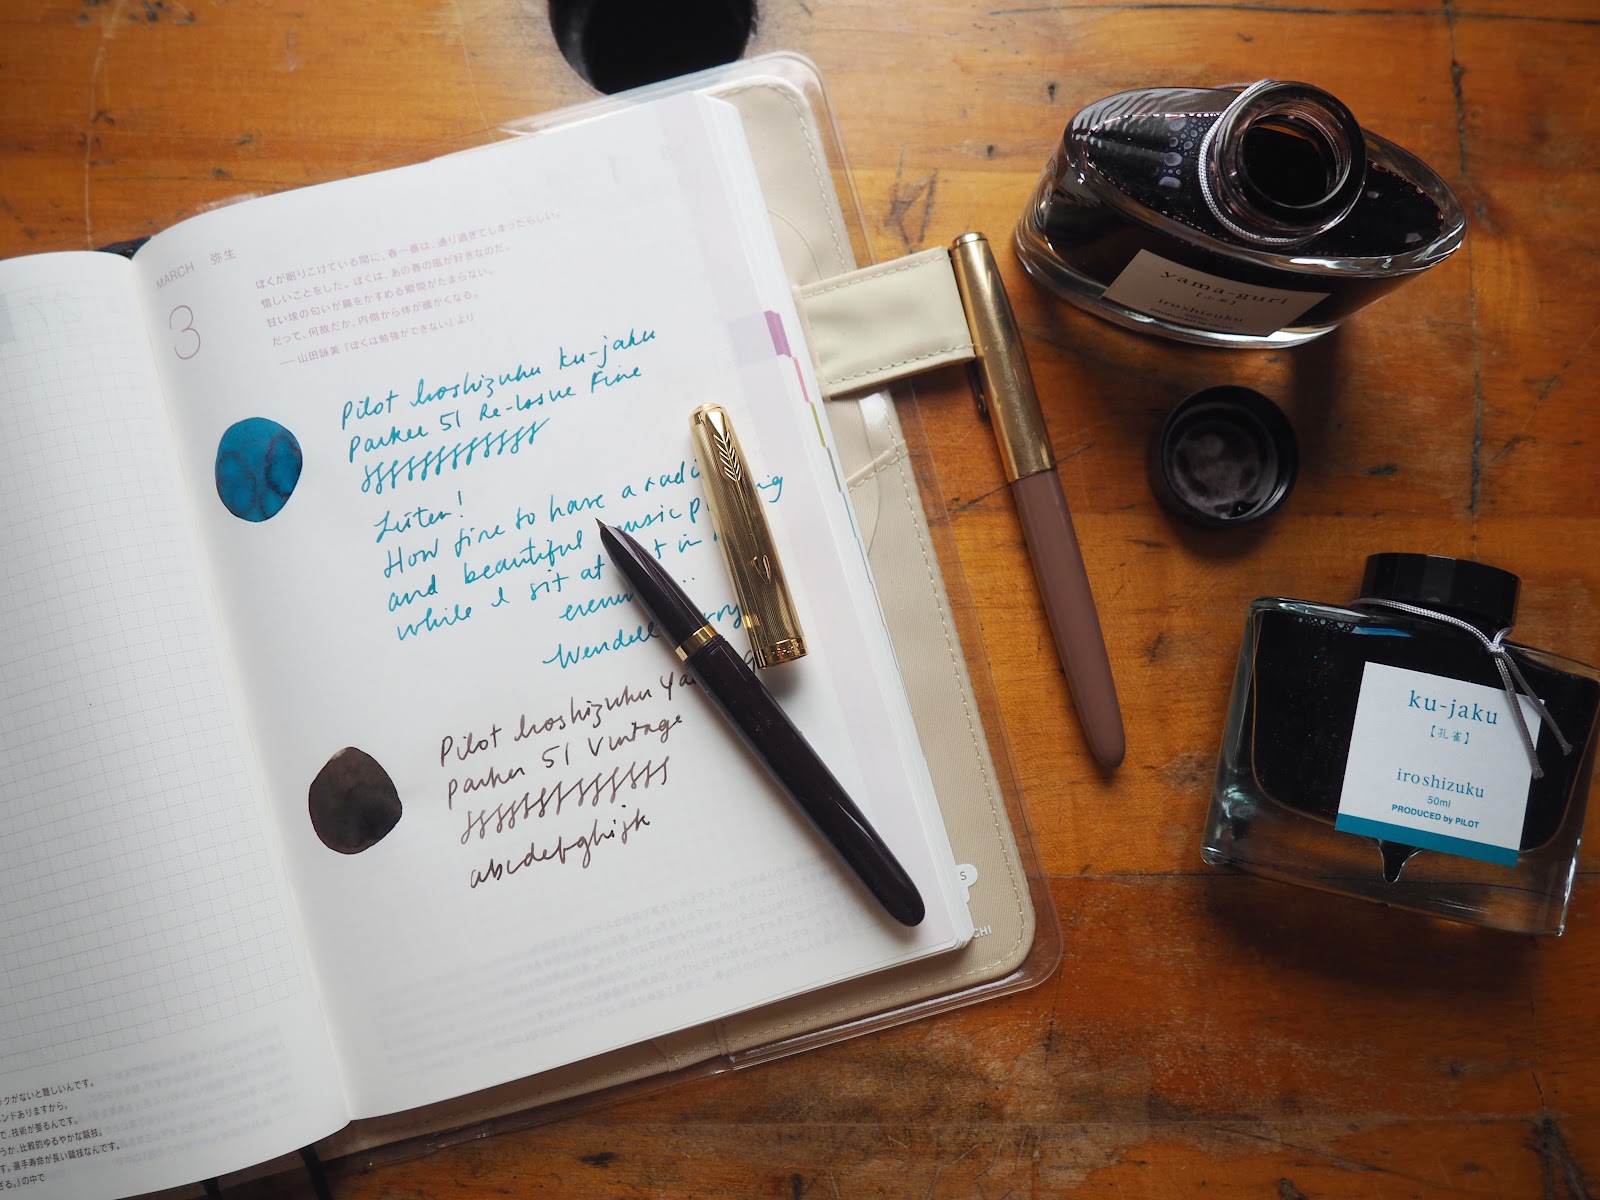 MARCH 弥生
3
ぼくが眠りこけている間に、春一番は、通り過ぎてしまったらしい。
惜しいことをした。ぼくは、あの春の風が好きなのだ。
甘い埃の匂いが鼻をかすめる瞬間がたまらない。
だって、何故だか、内側から体が暖かくなる。
── 山田詠美『ぼくは勉強ができない』より
Pilot Iroshizuku ku-jaku
Parker 51 Re-issue Fine
Listen!
How fine to have a radi
and beautiful music p ing
while I sit at t in
even ..
Wendell rry
Pilot Iroshizuku Ya
Parker 51 Vintage
abcdefghijk
ックがないと難しいんです。
ンドありますから。
で、技術が要るんです。
うか、比較的ゆるやかな競技。
す。選手寿命が長い競技なんです。
ざる。』の中で
S
CHI
yama-guri
【山栗】
iroshizuku
ku-jaku
【孔雀】
iroshizuku
50ml
PRODUCED by PILOT